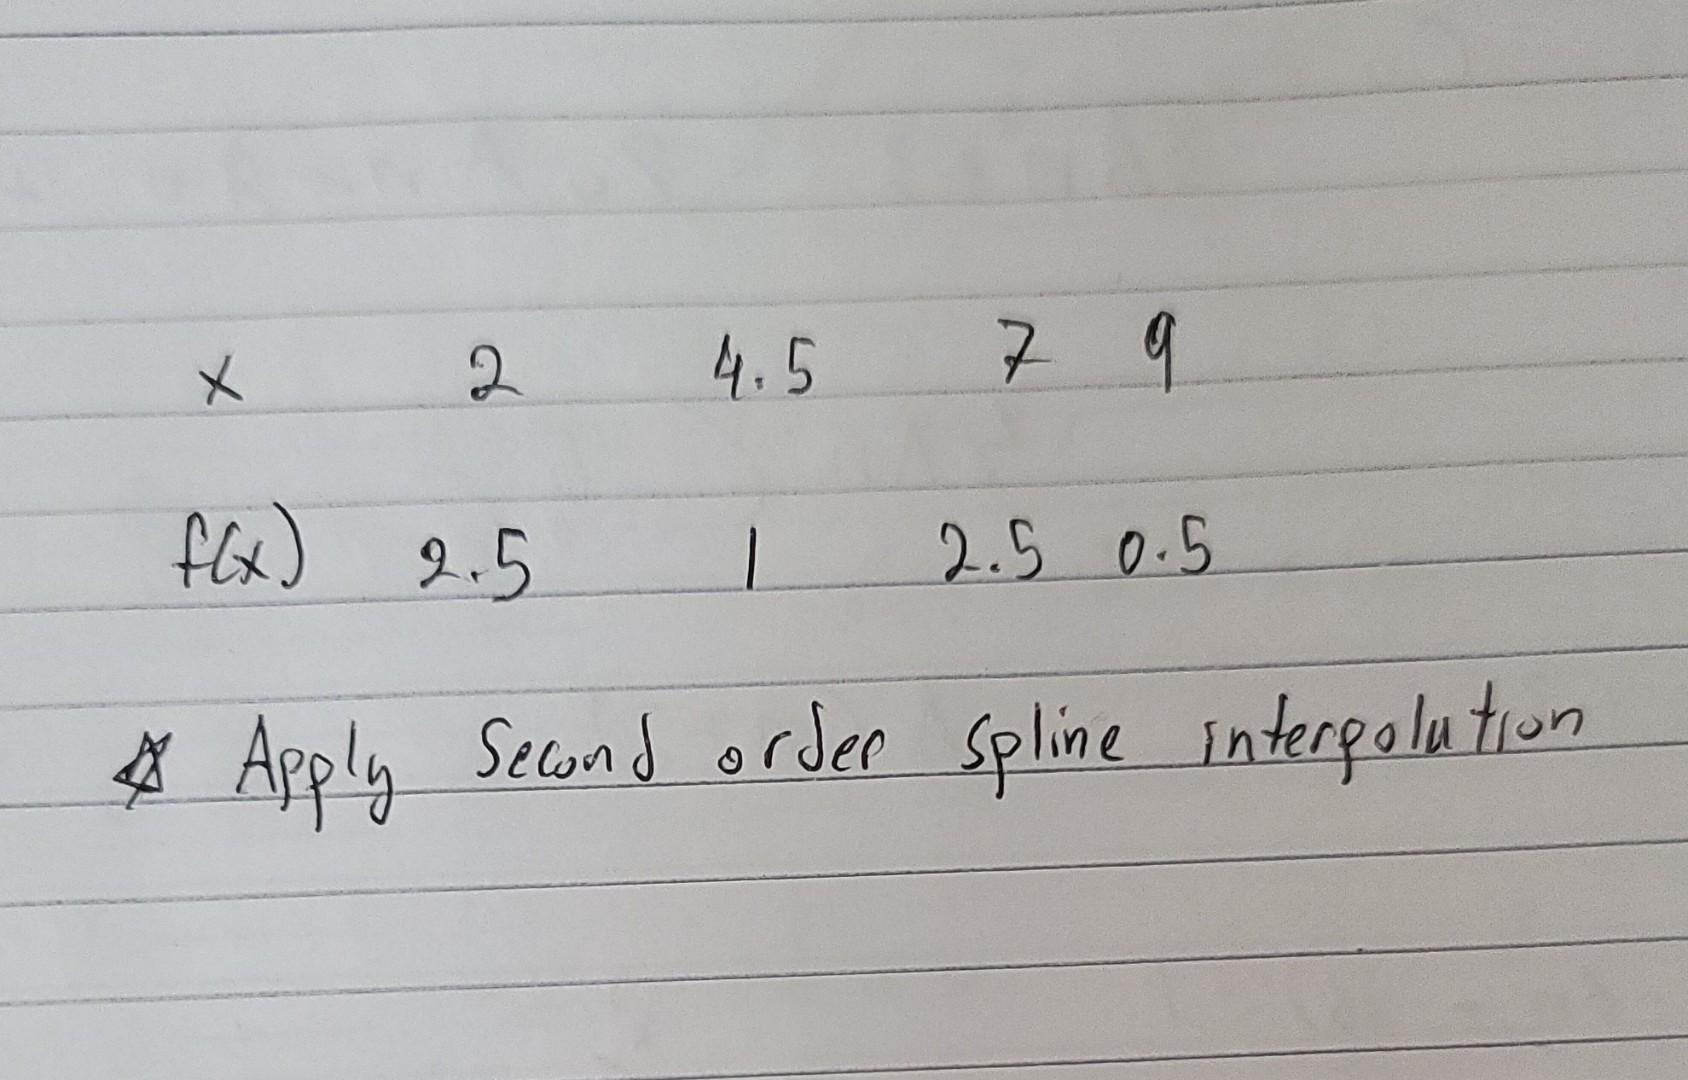 x 2 4.5 7 9
f(x) 2.5 1 2.5 0.5
☆ Apply Second order spline interpolation